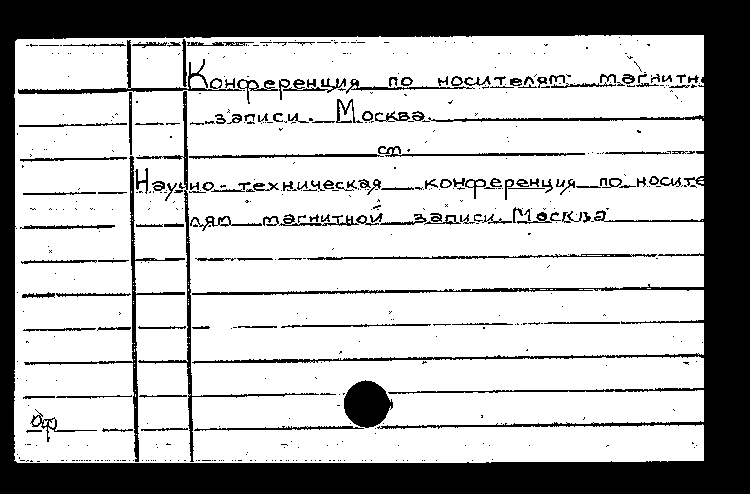 Конференция по носителям магнитн
записи. Москва.
ст.
Научно-техническая конференция по носите
лям магнитной записи. Москва
оф